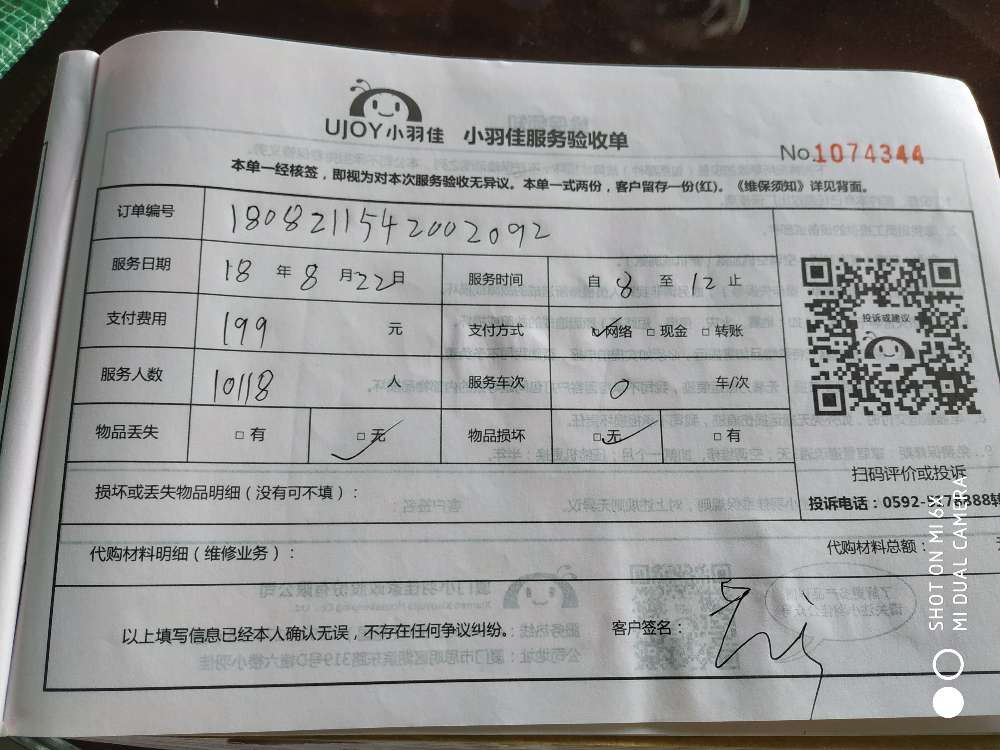 UJOY小羽佳 小羽佳服务验收单
No.1074344
本单一经核签，即视为对本次服务验收无异议。本单一式两份，客户留存一份(红)。《维保须知》详见背面。
订单编号 1808211542002092
服务日期 18 年 8 月 22 日 服务时间 自 8 至 12 止
支付费用 199 元 支付方式 ☑网络 □现金 □转账
投诉或建议
服务人数 10118 人 服务车次 0 车/次
物品丢失 □有 ☑无 物品损坏 ☑无 □有
扫码评价或投诉
损坏或丢失物品明细（没有可不填）：
投诉电话：0592-
代购材料明细（维修业务）： 代购材料总额：
以上填写信息已经本人确认无误，不存在任何争议纠纷。 客户签名：
SHOT ON MI 6X
MI DUAL CAMERA